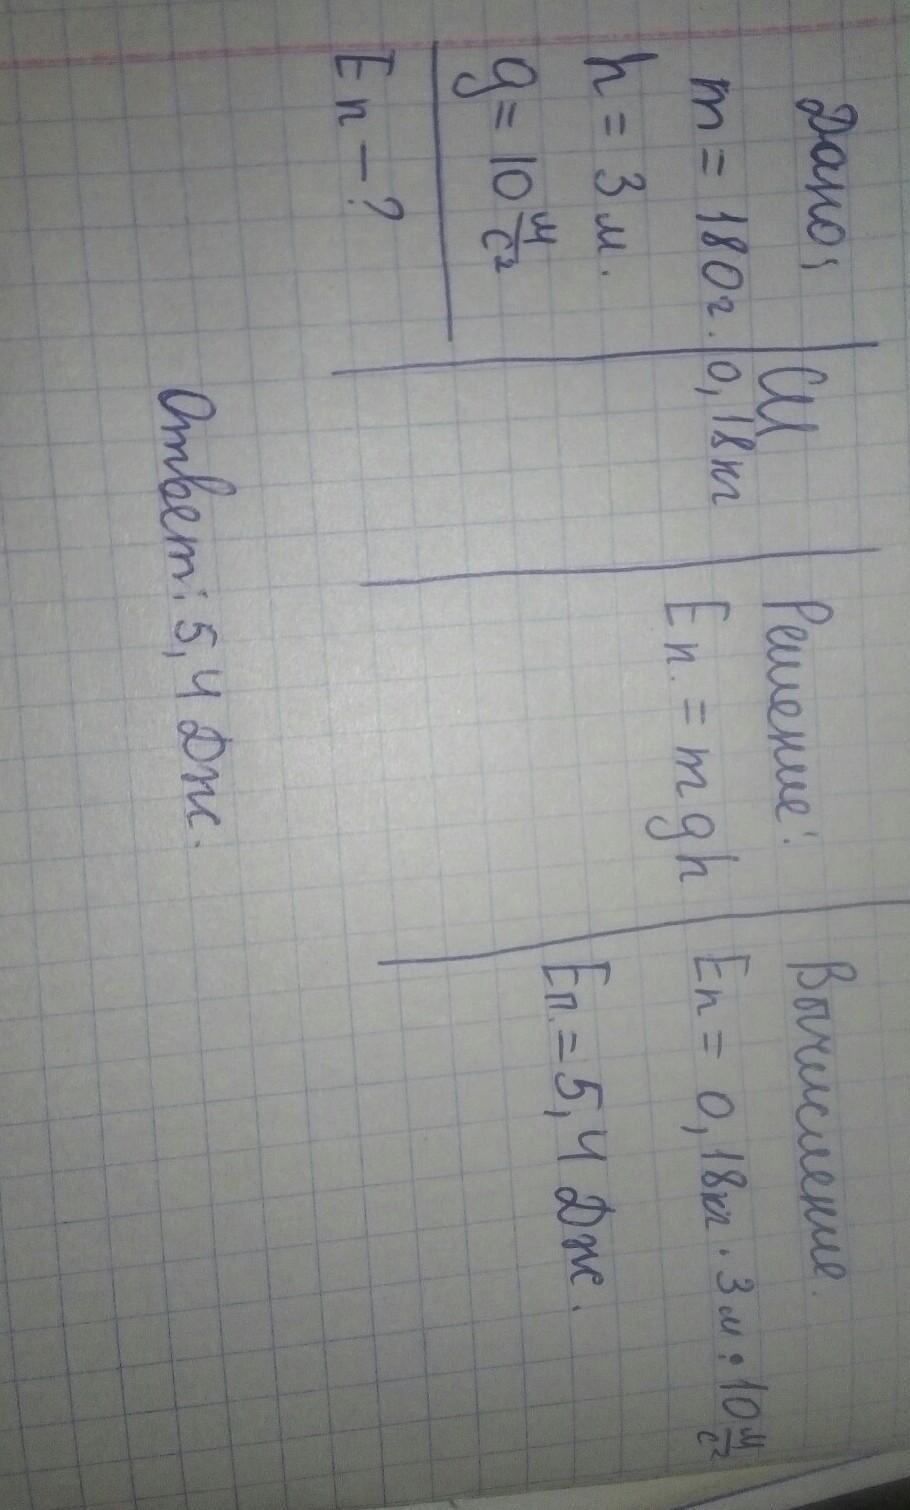 Дано:
m = 180г.
h = 3 м.
g = 10 м/с²
Eп — ?
СИ
0,18кг
Решение:
Eп. = mgh
Вычисление.
Eп = 0,18кг · 3 м · 10 м/с²
Eп. = 5,4 Дж.
Ответ: 5,4 Дж.